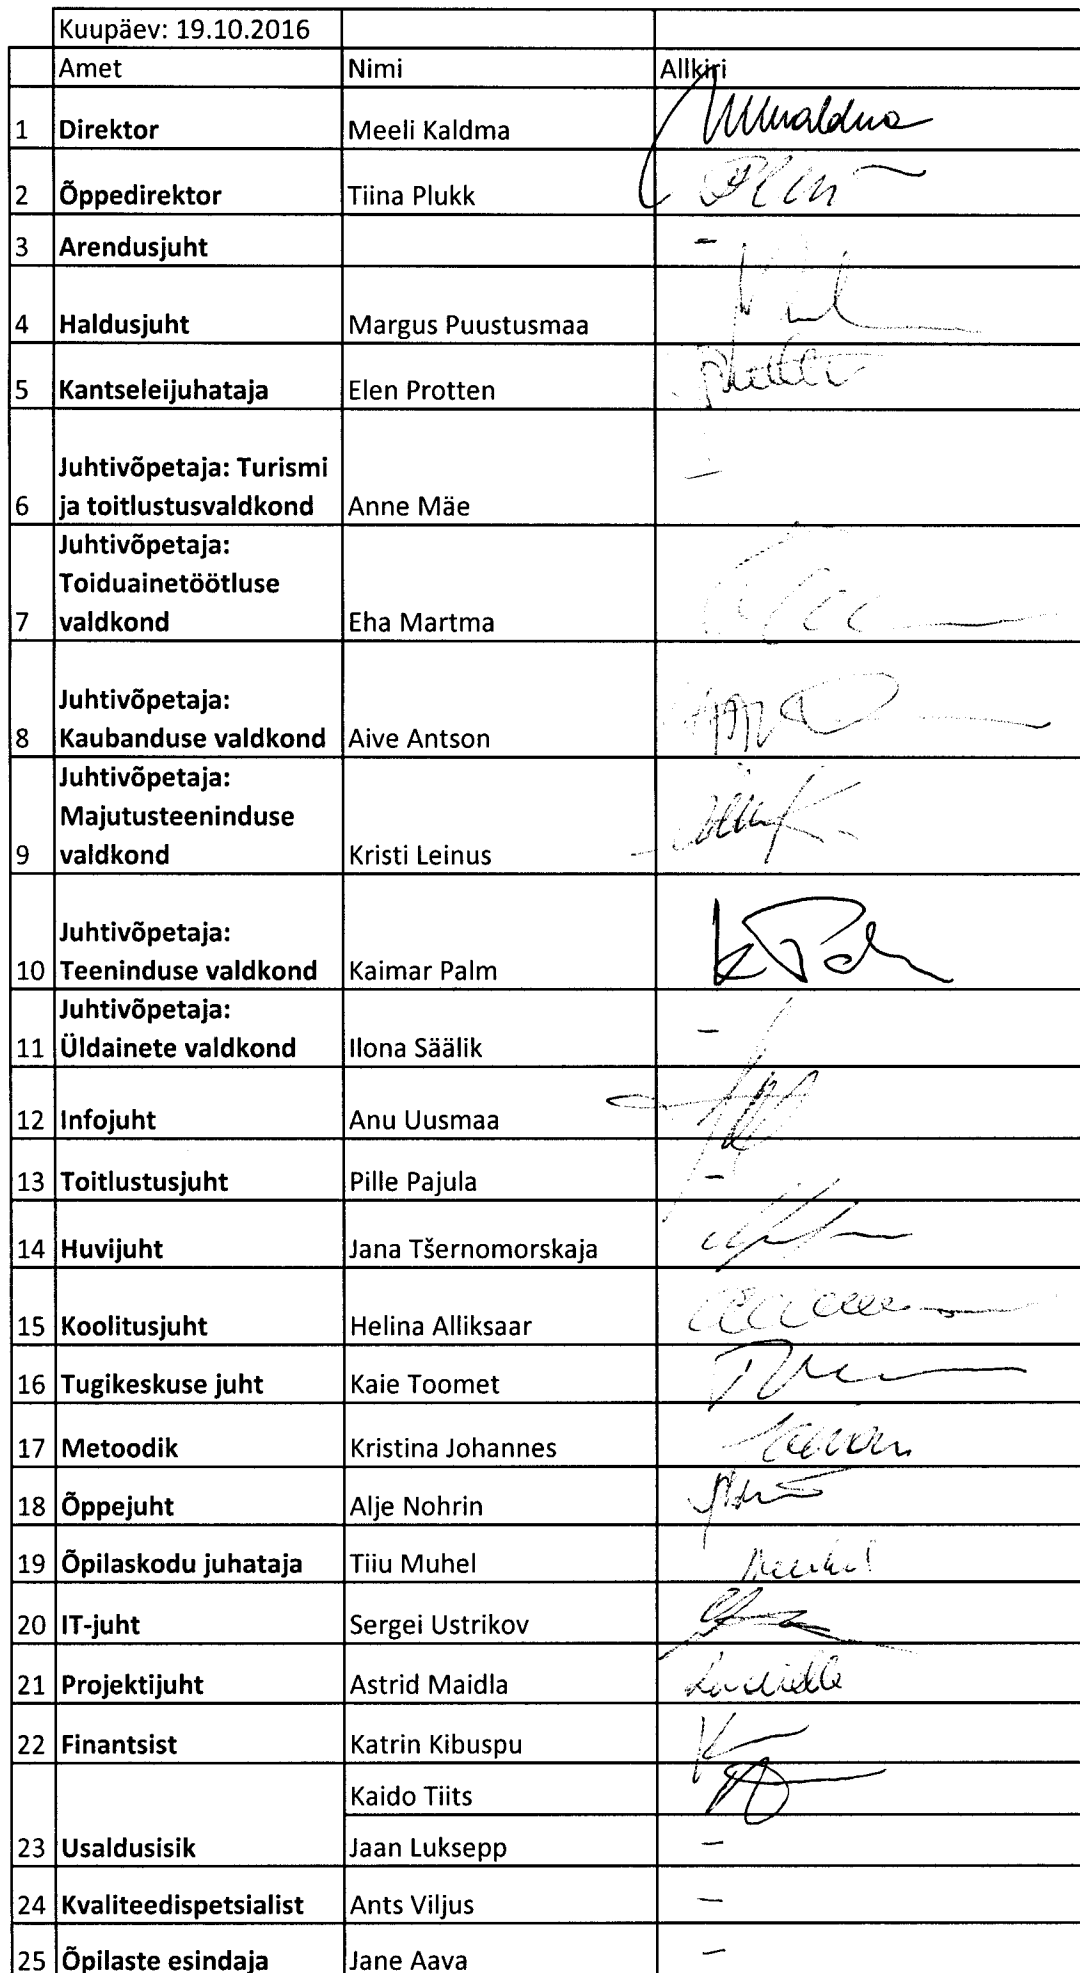 Kuupäev: 19.10.2016
Amet Nimi Allkiri
1 Direktor Meeli Kaldma
2 Õppedirektor Tiina Plukk
3 Arendusjuht -
4 Haldusjuht Margus Puustusmaa
5 Kantseleijuhataja Elen Protten
Juhtivõpetaja: Turismi
6 ja toitlustusvaldkond Anne Mäe -
Juhtivõpetaja:
Toiduainetöötluse
7 valdkond Eha Martma
Juhtivõpetaja:
8 Kaubanduse valdkond Aive Antson
Juhtivõpetaja:
Majutusteeninduse
9 valdkond Kristi Leinus
Juhtivõpetaja:
10 Teeninduse valdkond Kaimar Palm
Juhtivõpetaja:
11 Üldainete valdkond Ilona Säälik -
12 Infojuht Anu Uusmaa
13 Toitlustusjuht Pille Pajula -
14 Huvijuht Jana Tšernomorskaja
15 Koolitusjuht Helina Alliksaar
16 Tugikeskuse juht Kaie Toomet
17 Metoodik Kristina Johannes
18 Õppejuht Alje Nohrin
19 Õpilaskodu juhataja Tiiu Muhel
20 IT-juht Sergei Ustrikov
21 Projektijuht Astrid Maidla
22 Finantsist Katrin Kibuspu
Kaido Tiits
23 Usaldusisik Jaan Luksepp -
24 Kvaliteedispetsialist Ants Viljus -
25 Õpilaste esindaja Jane Aava -